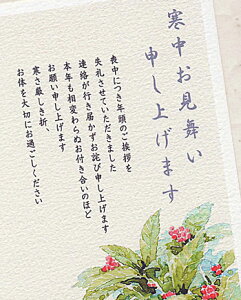 寒中お見舞い
申し上げます
喪中につき年頭のご挨拶を
失礼させていただきました
連絡が行き届かずお詫び申し上げます
本年も相変わらぬお付き合いのほど
お願い申し上げます
寒さ厳しき折、
お体を大切にお過ごしください